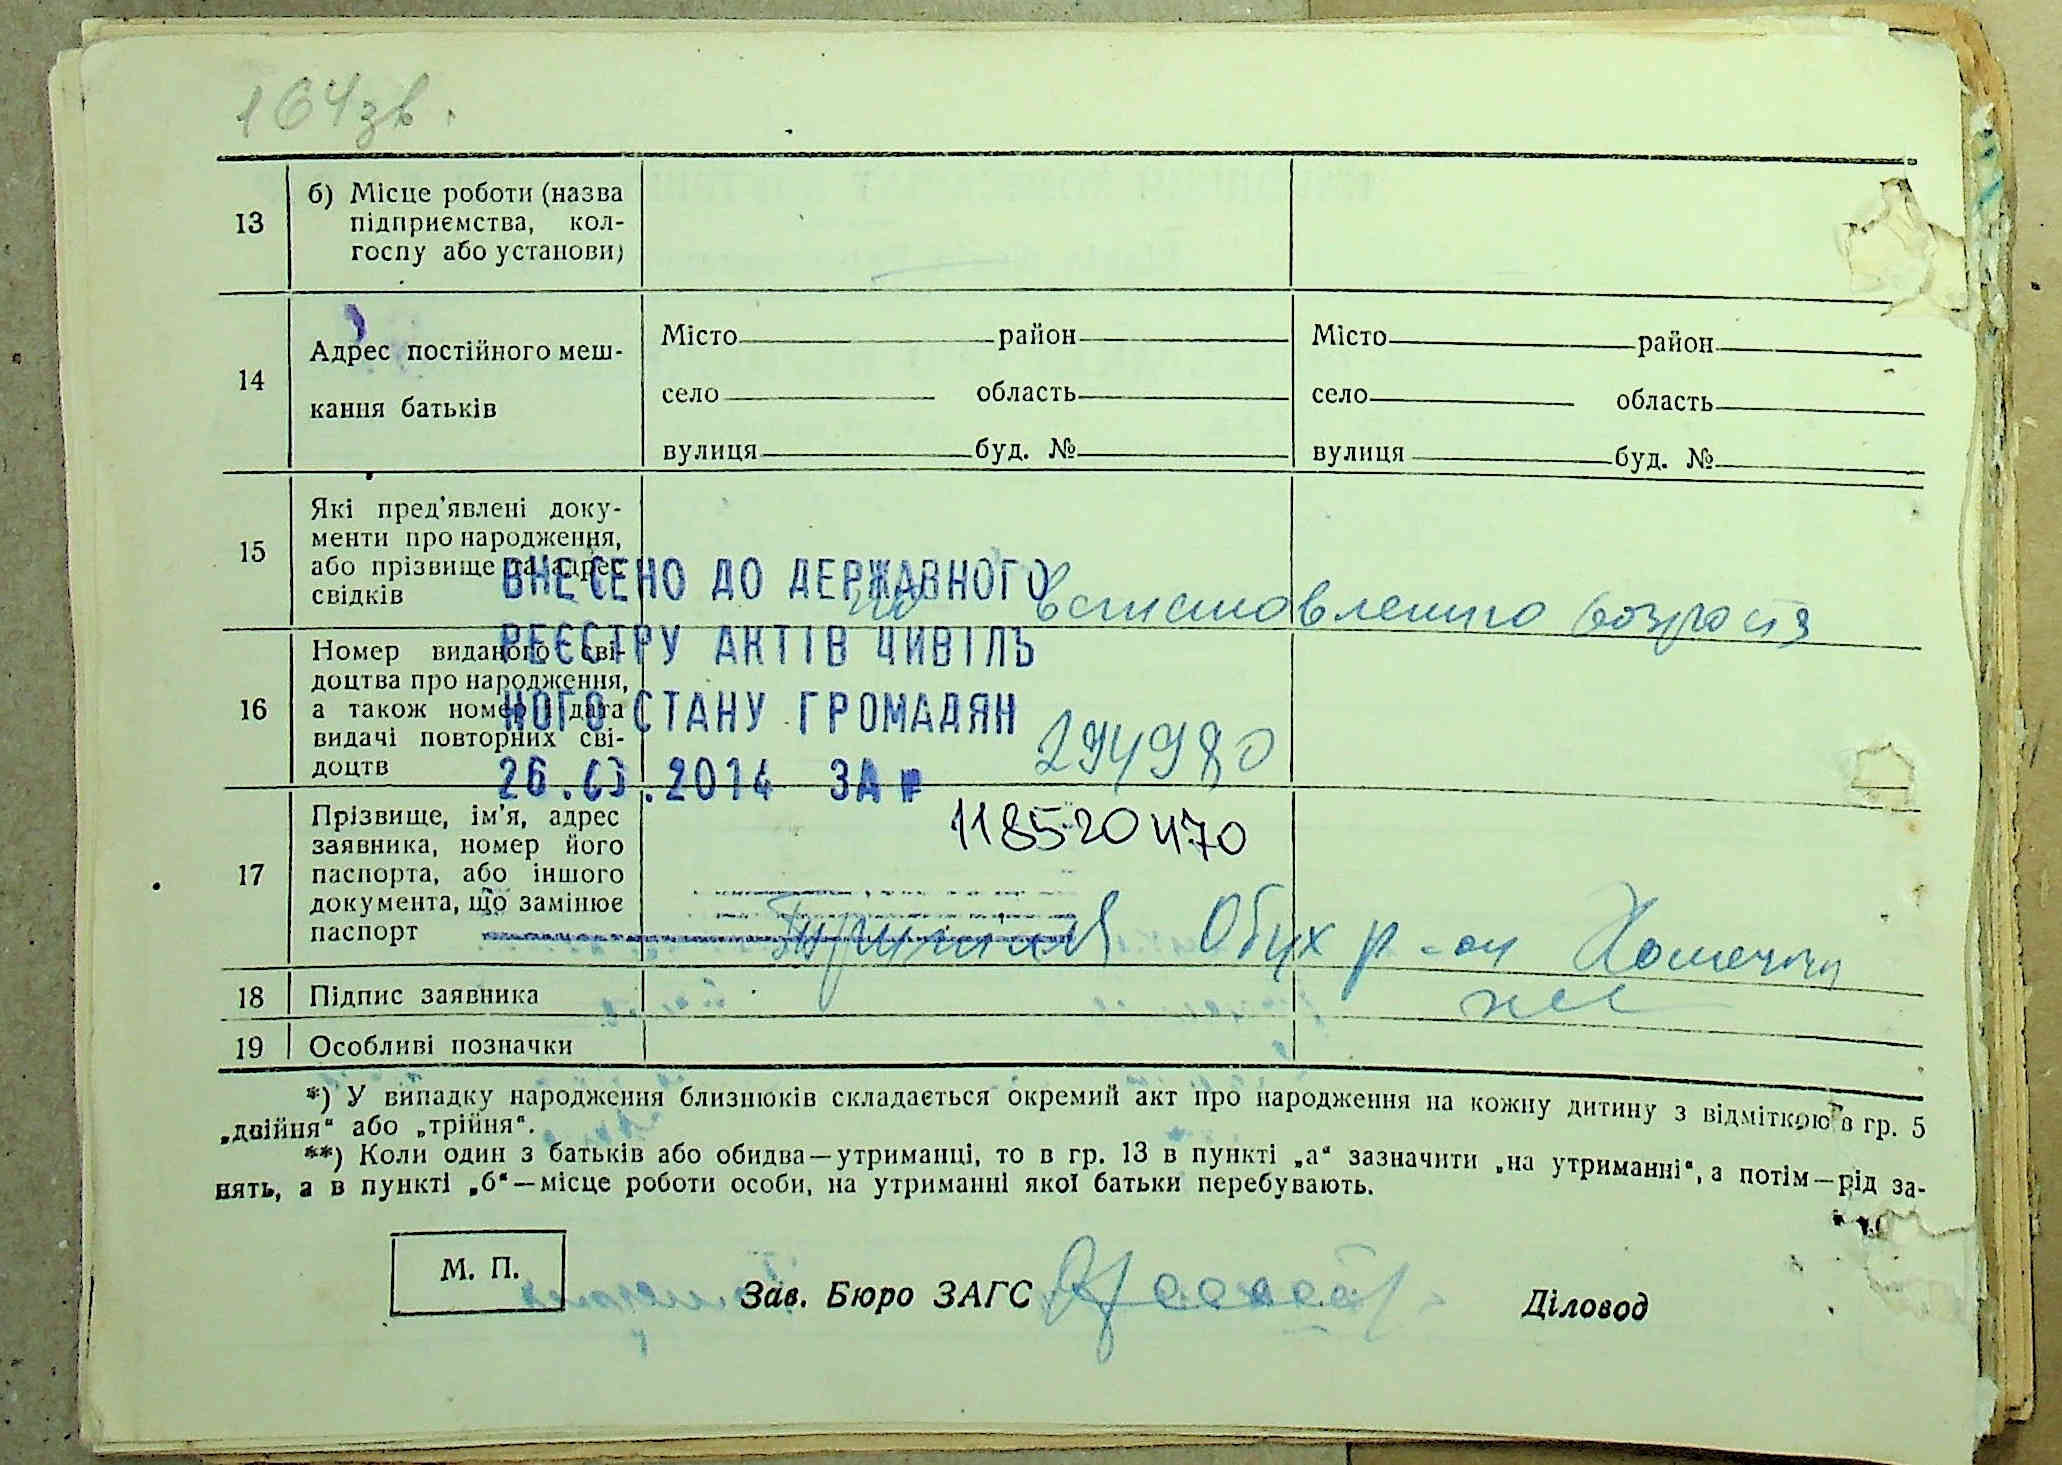 164зв.
13
б) Місце роботи (назва
підприємства, кол-
госпу або установи)
14
Адрес постійного меш-
кання батьків
Місто район
село область
вулиця буд. №
Місто район
село область
вулиця буд. №
15
Які пред'явлені доку-
менти про народження,
або прізвище та адрес
свідків
по встановленню возраста
16
Номер виданого сві-
доцтва про народження,
а також номер і дата
видачі повторних сві-
доцтв
294980
ВНЕСЕНО ДО ДЕРЖАВНОГО
РЕЄСТРУ АКТІВ ЦИВІЛЬ
НОГО СТАНУ ГРОМАДЯН
26. .2014 ЗА №
118520470
17
Прізвище, ім'я, адрес
заявника, номер його
паспорта, або іншого
документа, що замінює
паспорт
Обух р-он
18
Підпис заявника
19
Особливі позначки
*) У випадку народження близнюків складається окремий акт про народження на кожну дитину з відміткою в гр. 5
„двійня“ або „трійня“.
**) Коли один з батьків або обидва—утриманці, то в гр. 13 в пункті „а“ зазначити „на утриманні“, а потім—рід за-
нять, а в пункті „б“—місце роботи особи, на утриманні якої батьки перебувають.
М. П.
Зав. Бюро ЗАГС
Діловод